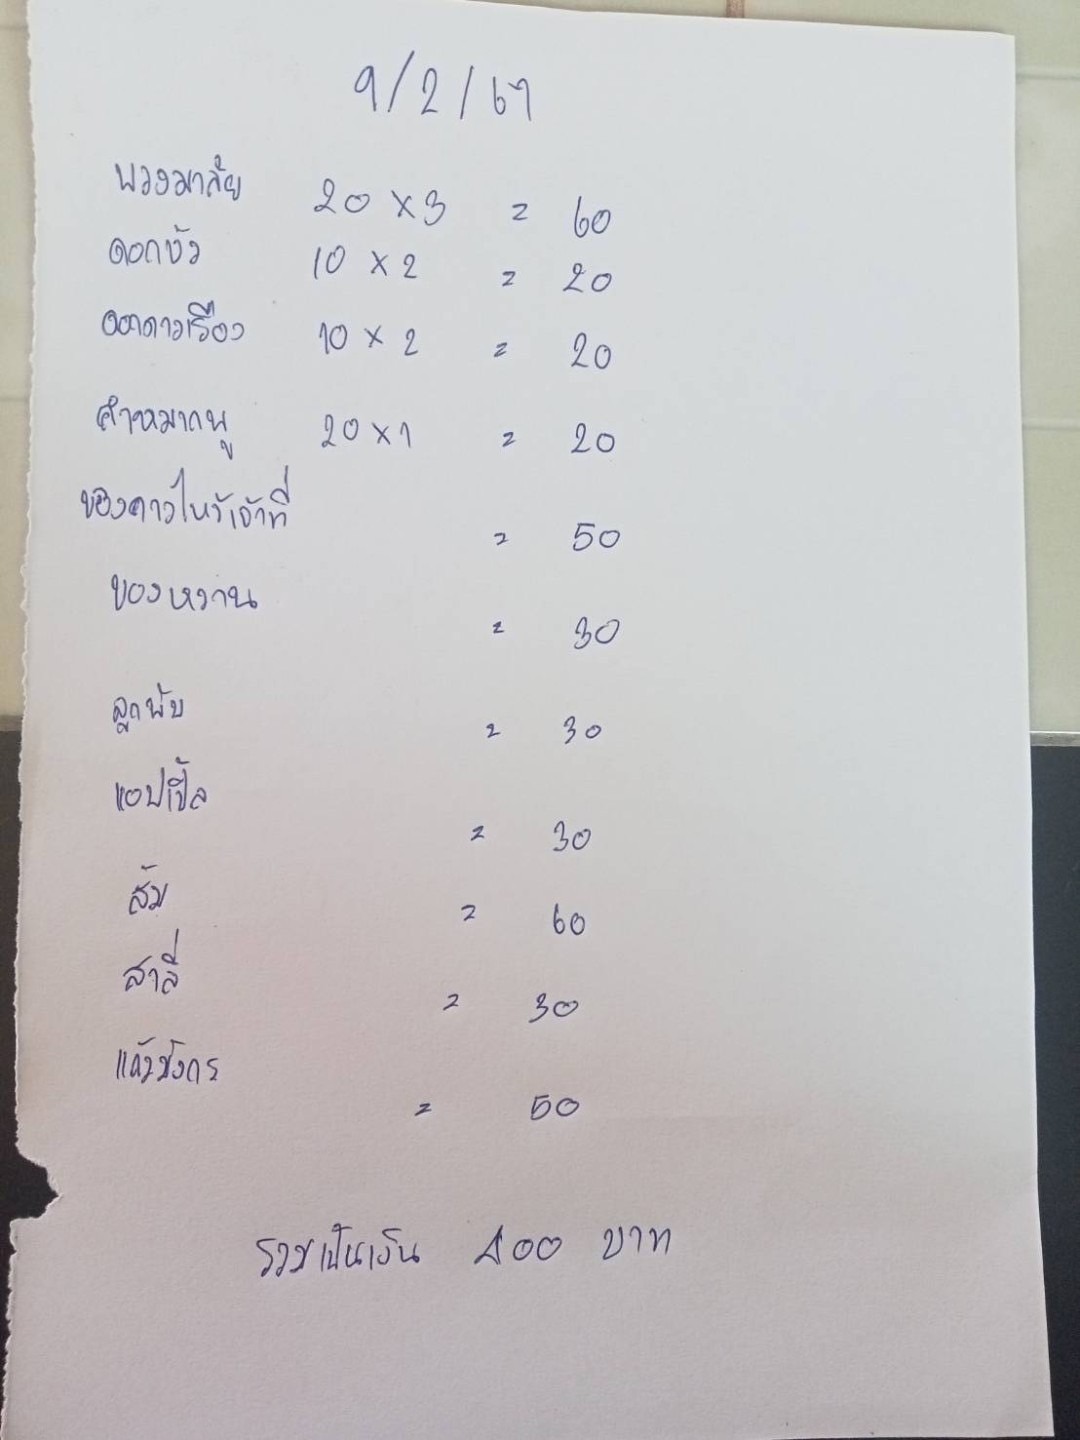 9/2/67
พวงมาลัย 20 x 3 = 60
ดอกบัว 10 x 2 = 20
ดอกดาวเรือง 10 x 2 = 20
คำหมากพู 20 x 1 = 20
ของคาวไหว้เจ้าที่ = 50
ของหวาน = 30
ลูกพับ = 30
แอปเปิ้ล = 30
ส้ม = 60
สาลี่ = 30
แก้วมังกร = 50
รวมเป็นเงิน 400 บาท